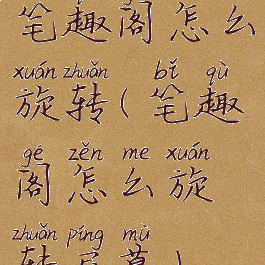 笔趣阁怎么
xuán zhuǎn bǐ qù
旋转(笔趣
gé zěn me xuán
阁怎么旋
zhuǎn píng mù
转屏幕)